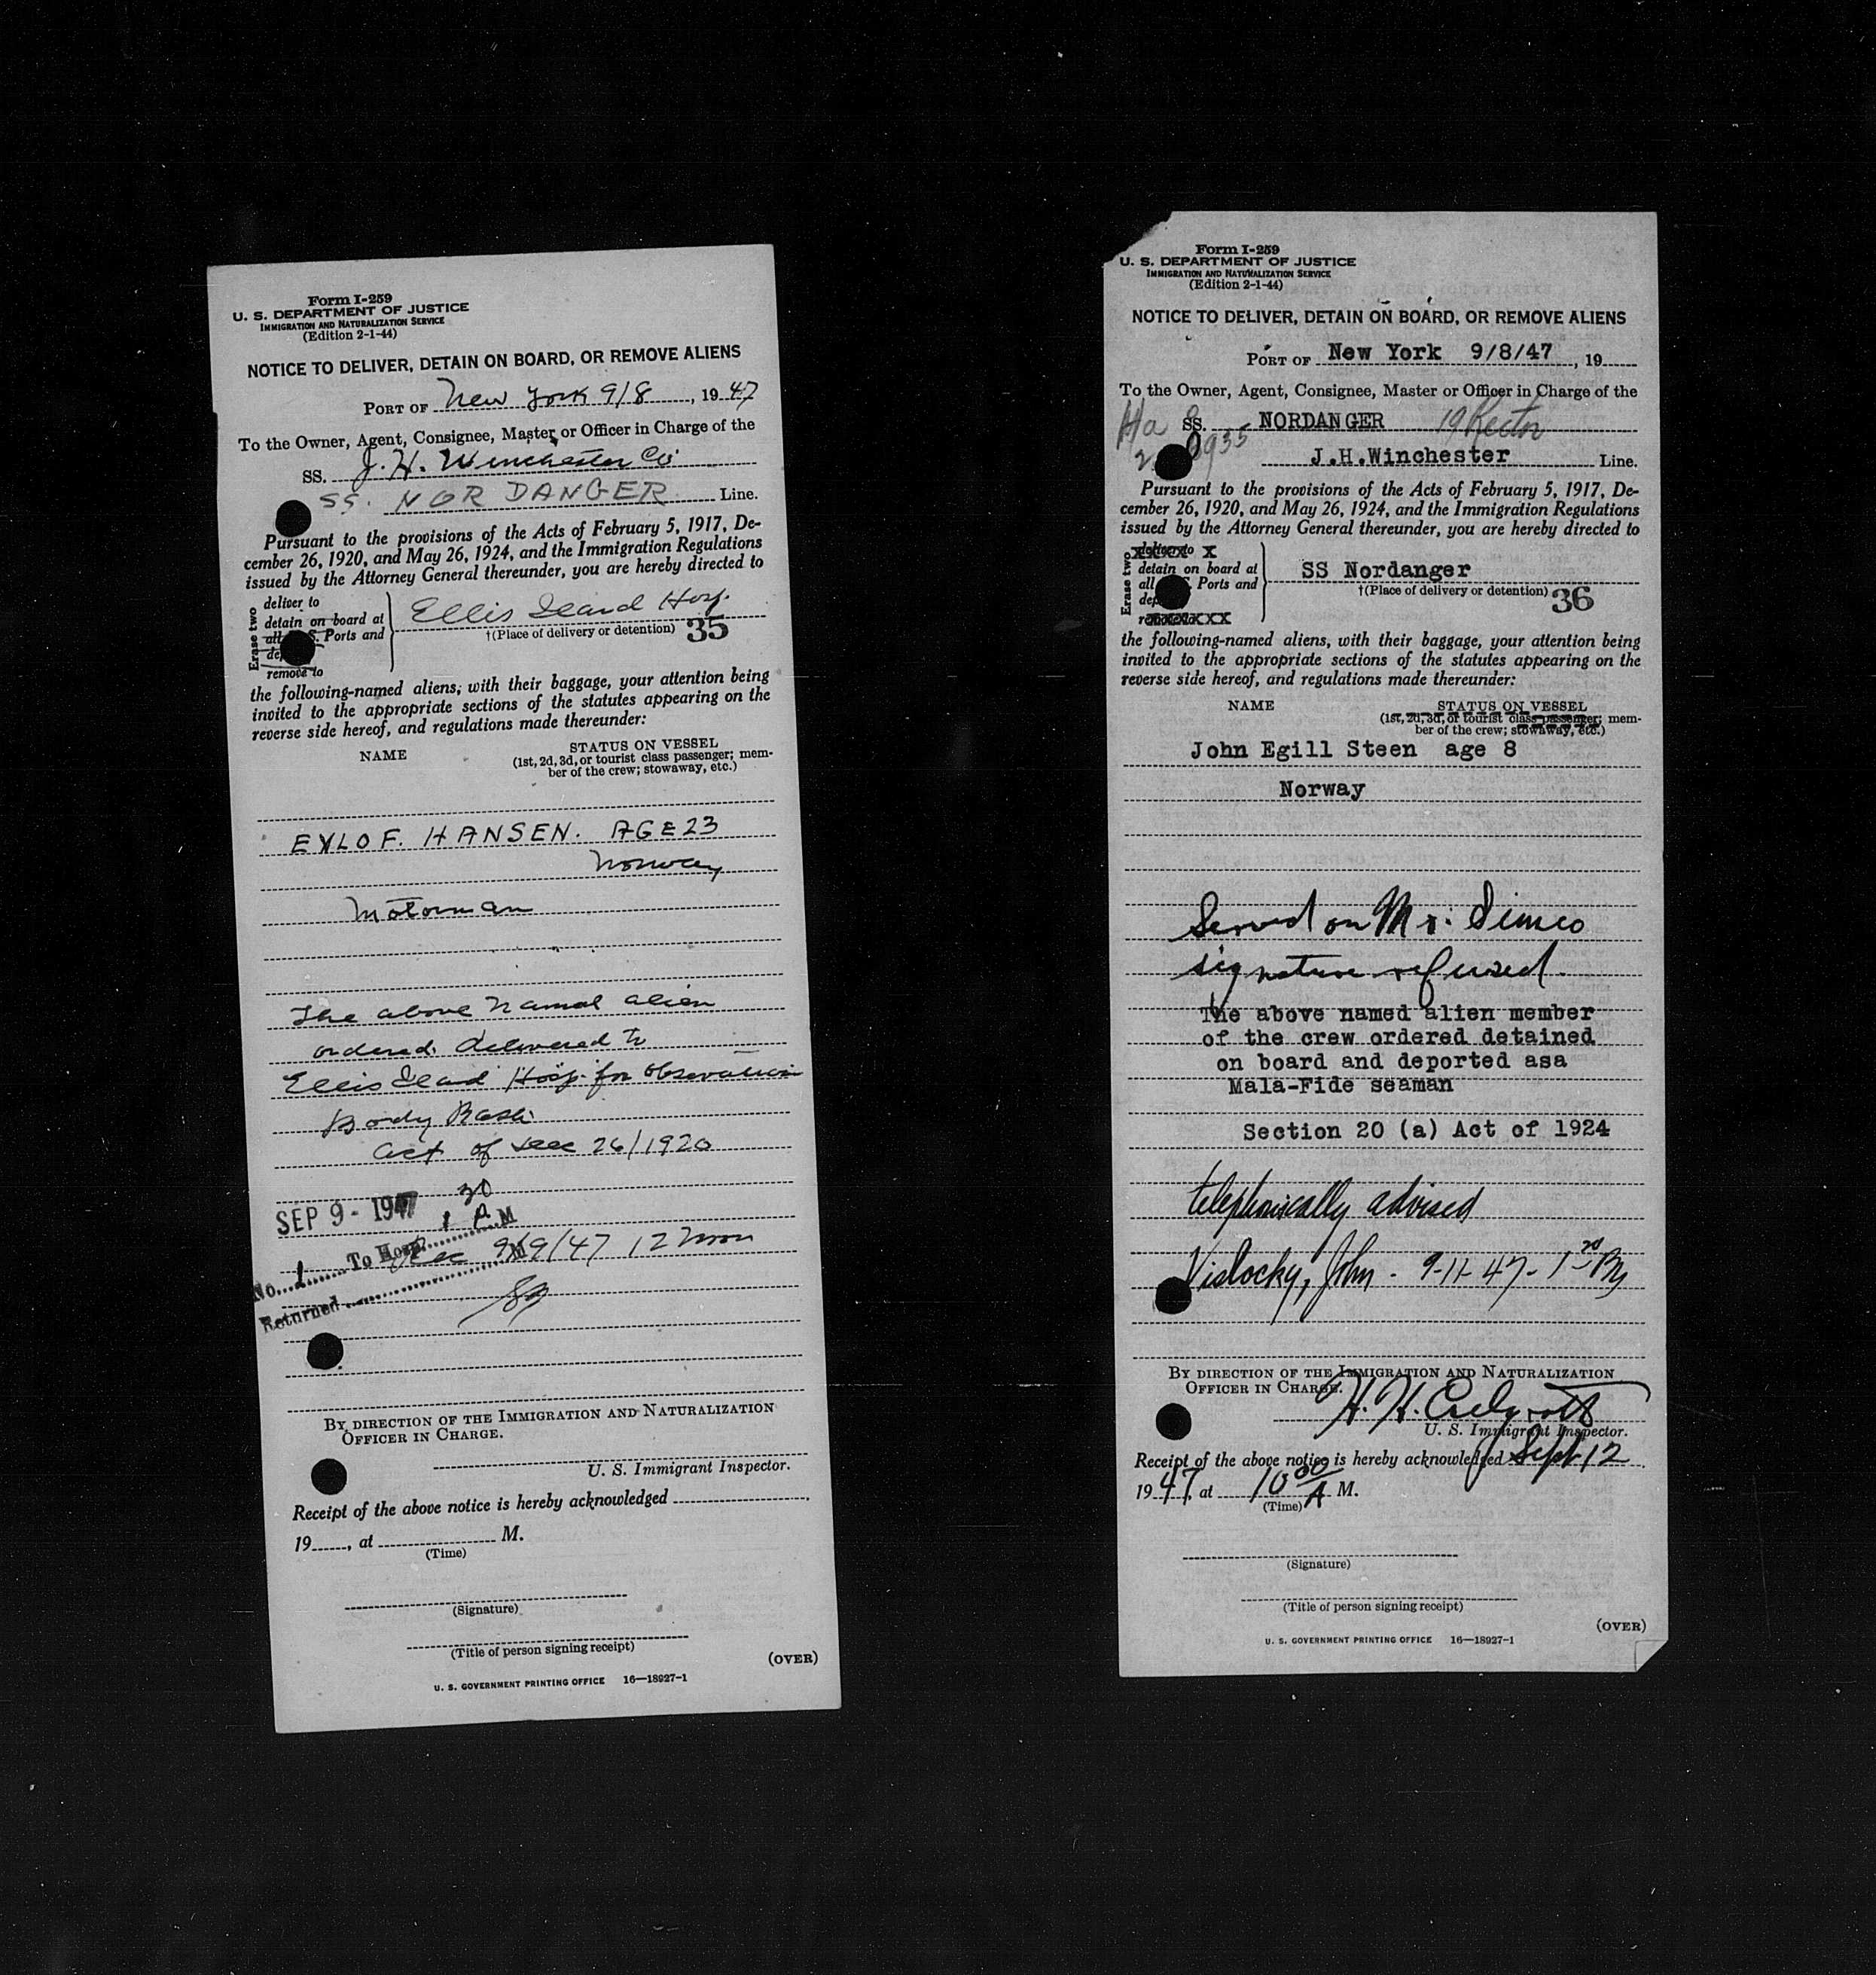 Form I-259
U. S. DEPARTMENT OF JUSTICE
IMMIGRATION AND NATURALIZATION SERVICE
(Edition 2-1-44)
NOTICE TO DELIVER, DETAIN ON BOARD, OR REMOVE ALIENS
PORT OF New York 9/8, 1947
To the Owner, Agent, Consignee, Master or Officer in Charge of the
SS. J. H. Winchester Co
SS. NORDANGER Line.
Pursuant to the provisions of the Acts of February 5, 1917, De-
cember 26, 1920, and May 26, 1924, and the Immigration Regulations
issued by the Attorney General thereunder, you are hereby directed to
Erase two
deliver to
detain on board at
all S. Ports and
de
remove to
Ellis Iland Hosp.
†(Place of delivery or detention) 35
the following-named aliens, with their baggage, your attention being
invited to the appropriate sections of the statutes appearing on the
reverse side hereof, and regulations made thereunder:
NAME STATUS ON VESSEL
(1st, 2d, 3d, or tourist class passenger; mem-
ber of the crew; stowaway, etc.)
HANSEN. AGE 23
Norway
Motorman
The above named alien
ordered delivered to
Ellis Iland Hosp. for observation
Body Rash
Act of Dec 26/1920
SEP 9 - 1947 1 30 A M
No. 1 To Hosp.
Rec 9/9/47 12 Noon
Returned
BY DIRECTION OF THE IMMIGRATION AND NATURALIZATION
OFFICER IN CHARGE.
U. S. Immigrant Inspector.
Receipt of the above notice is hereby acknowledged
19, at M.
(Time)
(Signature)
(Title of person signing receipt)
(OVER)
U. S. GOVERNMENT PRINTING OFFICE 16—18927-1
Form I-259
U. S. DEPARTMENT OF JUSTICE
IMMIGRATION AND NATURALIZATION SERVICE
(Edition 2-1-44)
NOTICE TO DELIVER, DETAIN ON BOARD, OR REMOVE ALIENS
PORT OF New York 9/8/47, 19
To the Owner, Agent, Consignee, Master or Officer in Charge of the
SS. NORDANGER 19 Rector
J.H.Winchester Line.
Pursuant to the provisions of the Acts of February 5, 1917, De-
cember 26, 1920, and May 26, 1924, and the Immigration Regulations
issued by the Attorney General thereunder, you are hereby directed to
Erase two
deliver to
detain on board at
all Ports and
dep
remove to
SS Nordanger
†(Place of delivery or detention) 36
the following-named aliens, with their baggage, your attention being
invited to the appropriate sections of the statutes appearing on the
reverse side hereof, and regulations made thereunder:
NAME STATUS ON VESSEL
(1st, 2d, 3d, or tourist class passenger; mem-
ber of the crew; stowaway, etc.)
John Egill Steen age 8
Norway
Served on Mr. Simco
signature refused.
The above named alien member
of the crew ordered detained
on board and deported asa
Mala-Fide seaman
Section 20 (a) Act of 1924
telephonically advised
Vislocky, John - 9-11-47-
BY DIRECTION OF THE IMMIGRATION AND NATURALIZATION
OFFICER IN CHARGE.
H. H.
U. S. Immigrant Inspector.
Receipt of the above notice is hereby acknowledged Sept 12
1947, at 10 00 A M.
(Time)
(Signature)
(Title of person signing receipt)
(OVER)
U. S. GOVERNMENT PRINTING OFFICE 16—18927-1